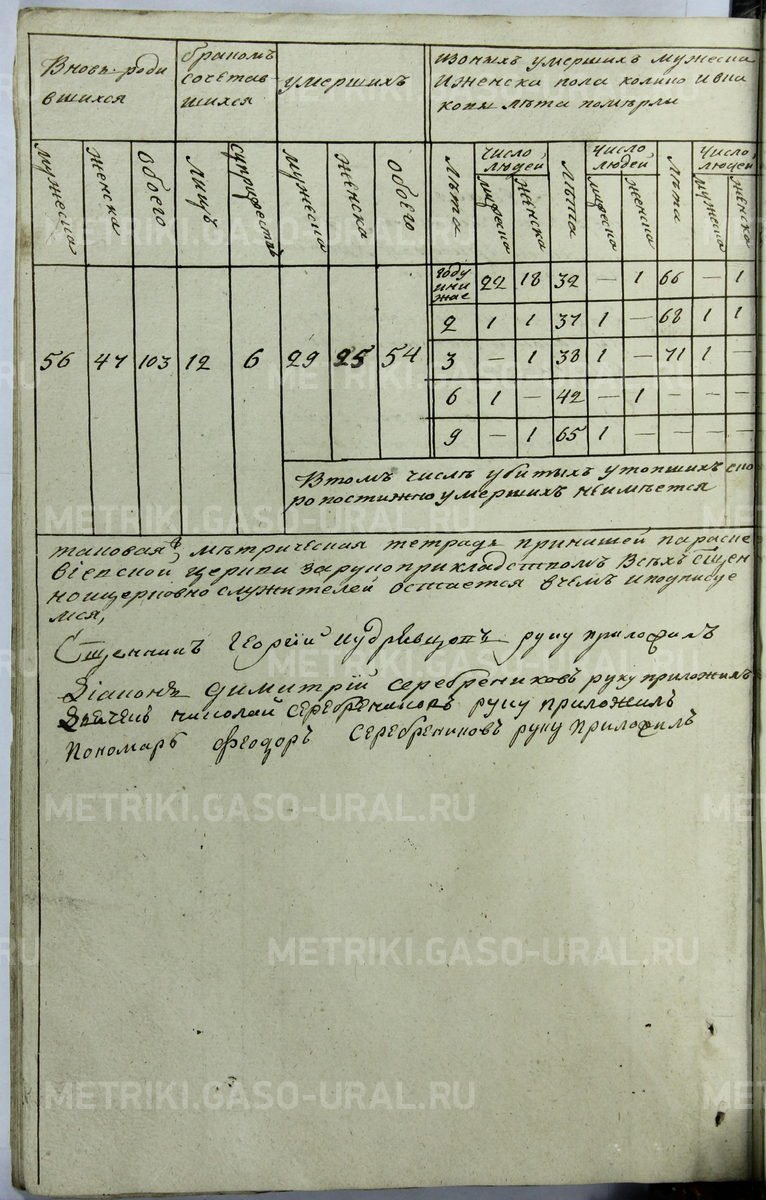 Вновь роди
вшихся
браком
сочетав
шихся
умершихъ
изоныхъ умершихъ мужеска
иженска пола колико ивка
копы лѣта помѣрли
мужеска
женска
обоего
лицъ
супружествъ
мужеска
женска
обоего
лѣта
число людей
мужеска
женска
лѣта
число людей
мужеска
женска
лѣта
число людей
мужеска
женска
году ини жае 22 18 32 — 1 66 — 1
2 1 1 37 1 — 68 1 1
56 47 103 12 6 29 25 54 3 — 1 38 1 — 71 1 —
6 1 — 42 — 1 — — —
9 — 1 65 1 — — — —
Втомъ числѣ убитыхъ утопшихъ ско
ропостижно умершихъ неимѣется
таковая мѣтрическая тетрадь принашей параске
віевской церкви зарукоприкладствомъ всѣхъ сщен
ноцерковно служителей остается вчемъ иподписуе
мся,
Сщенникъ Георгій Кудрявцовъ руку приложилъ
Діаконъ Димитрій Серебрениковъ руку приложилъ
Дьячекъ Николай Серебрениковъ руку приложилъ
Пономарь Феодоръ Серебрениковъ руку приложилъ
METRIKI.GASO-URAL.RU